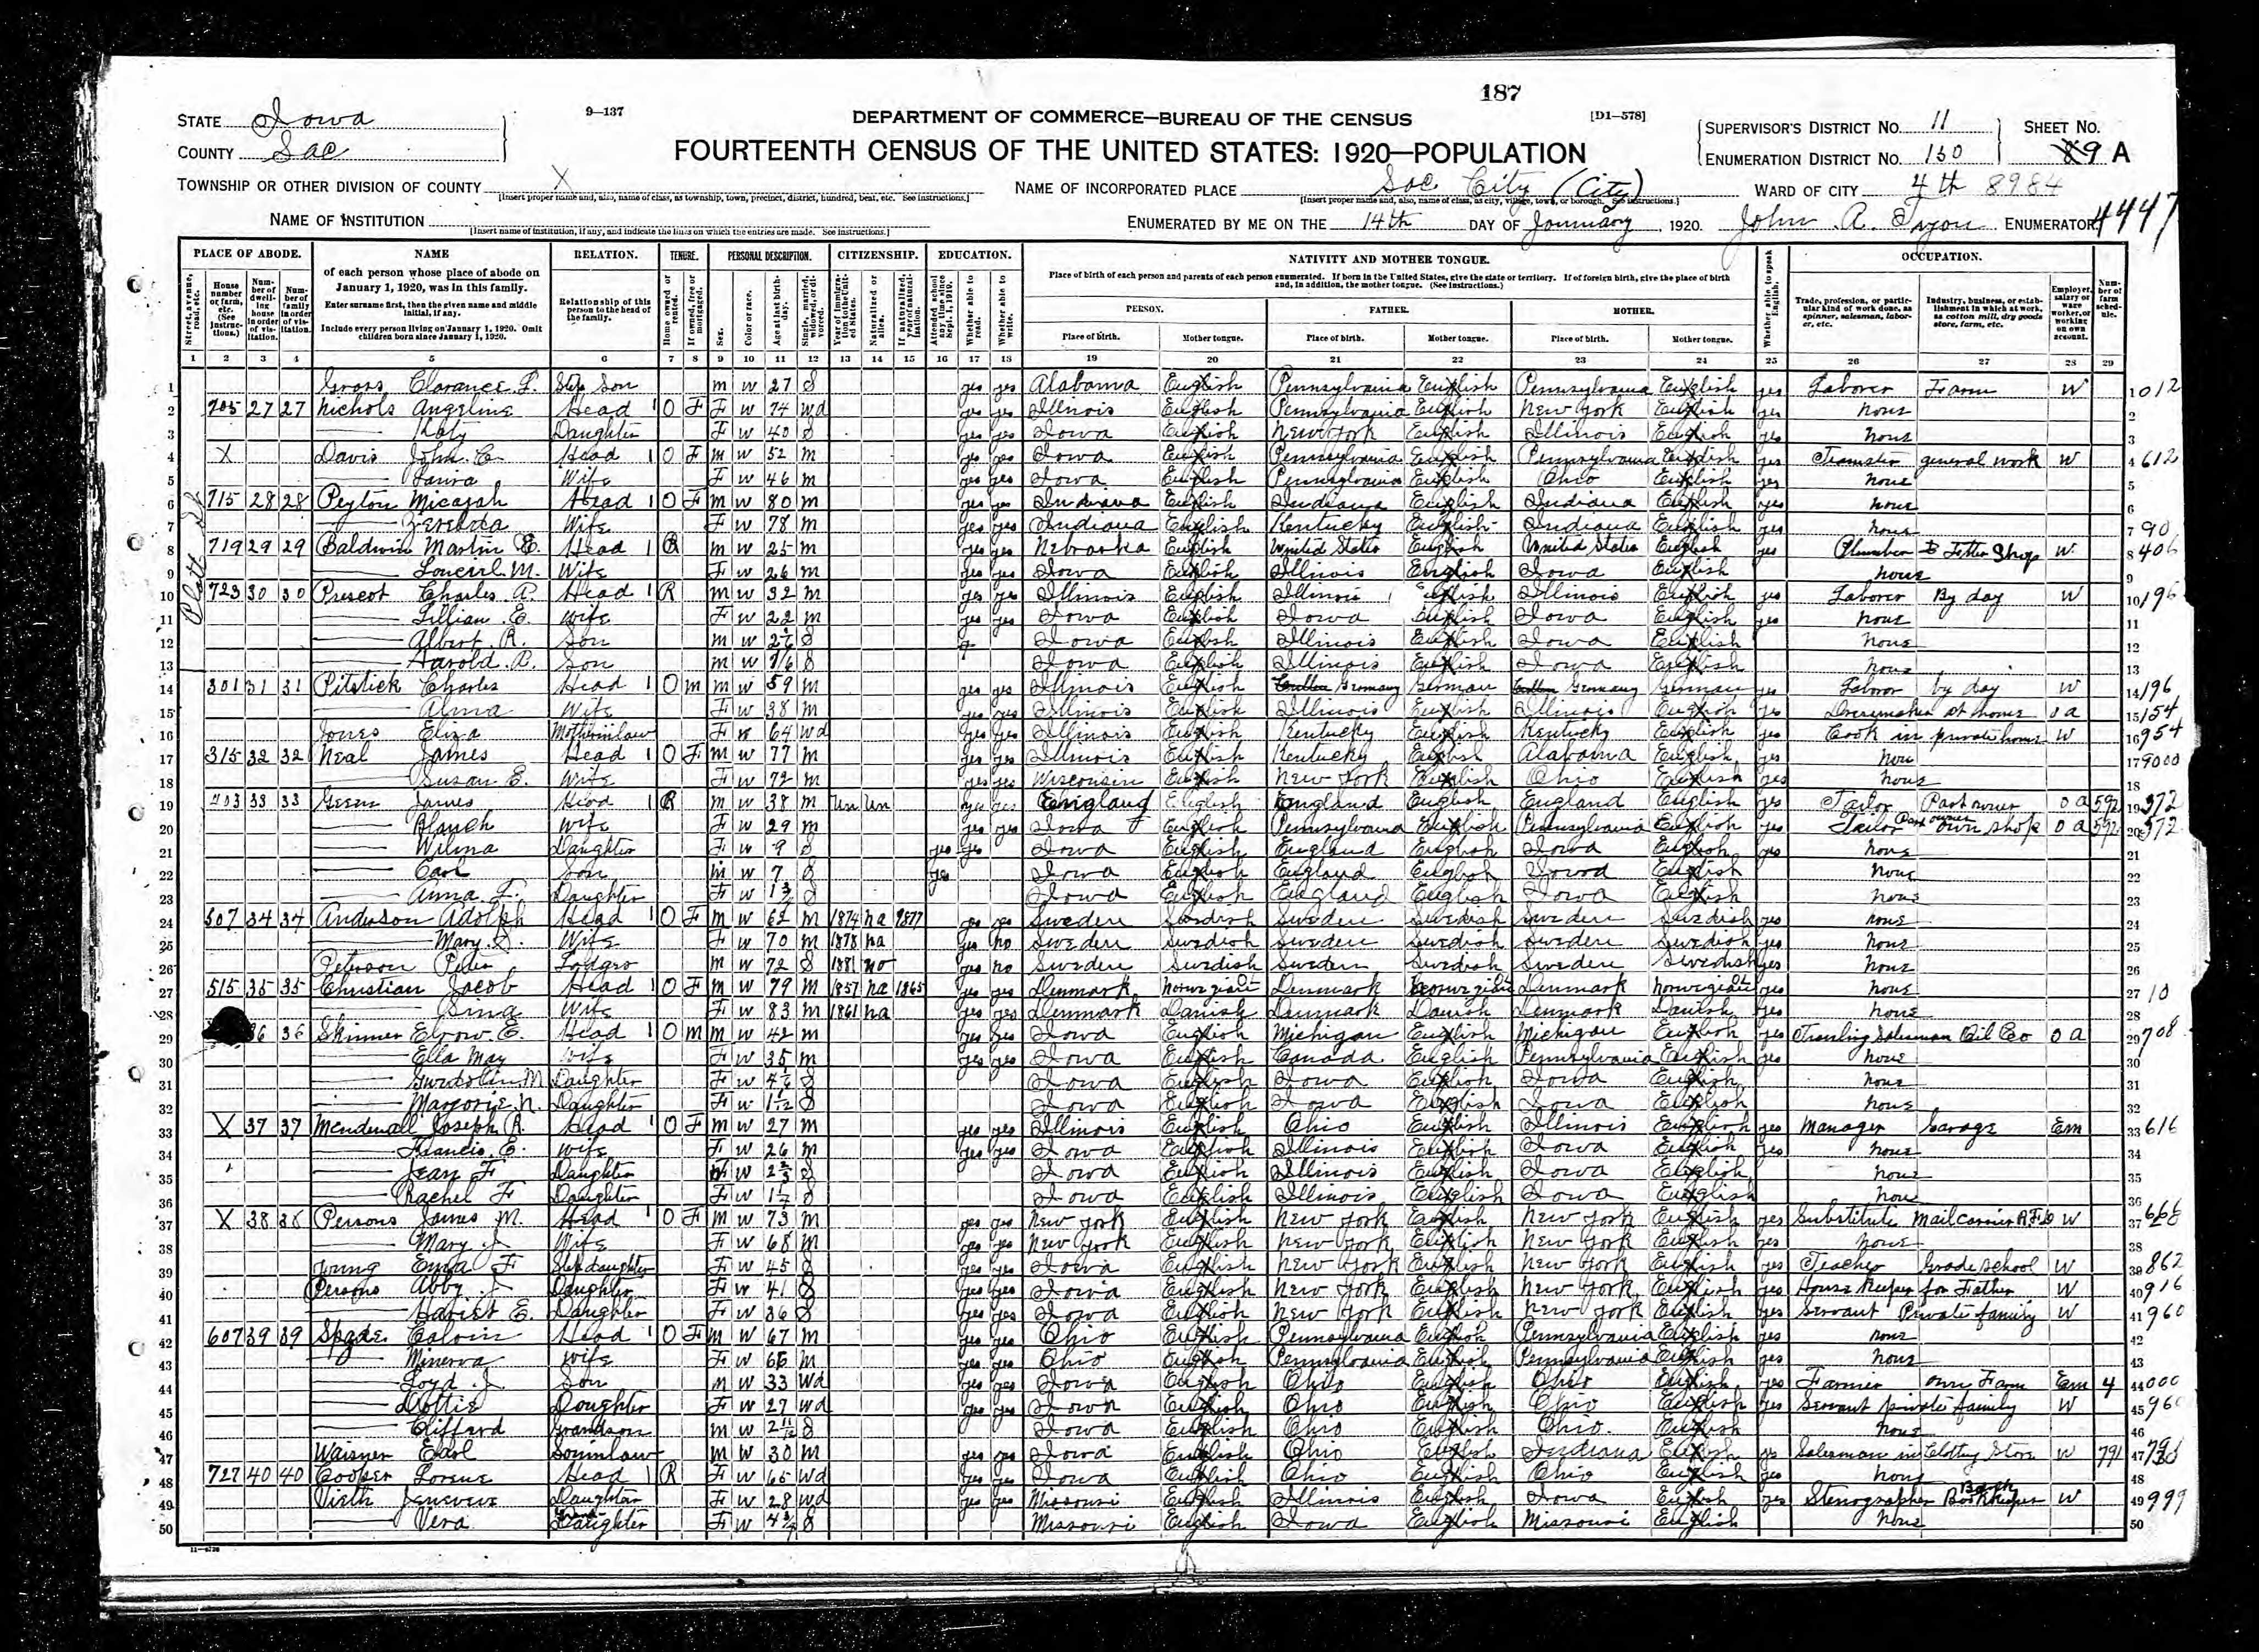 187
STATE Iowa 9—137 DEPARTMENT OF COMMERCE—BUREAU OF THE CENSUS [D1—578] SUPERVISOR'S DISTRICT No. 11 SHEET No.
COUNTY Sac FOURTEENTH CENSUS OF THE UNITED STATES: 1920—POPULATION ENUMERATION DISTRICT No. 150 9 A
TOWNSHIP OR OTHER DIVISION OF COUNTY X NAME OF INCORPORATED PLACE Sac City (City) WARD OF CITY 4th 8984
[Insert proper name and, also, name of class, as township, town, precinct, district, hundred, beat, etc. See instructions.] [Insert proper name and, also, name of class, as city, village, town, or borough. See instructions.]
NAME OF INSTITUTION ENUMERATED BY ME ON THE 14th DAY OF January, 1920. John A. Tyon ENUMERATOR. 4447
[Insert name of institution, if any, and indicate the lines on which the entries are made. See instructions.]
PLACE OF ABODE. NAME RELATION. TENURE. PERSONAL DESCRIPTION. CITIZENSHIP. EDUCATION. NATIVITY AND MOTHER TONGUE. OCCUPATION.
of each person whose place of abode on January 1, 1920, was in this family.
Enter surname first, then the given name and middle initial, if any.
Include every person living on January 1, 1920. Omit children born since January 1, 1920.
Relationship of this person to the head of the family.
Place of birth of each person and parents of each person enumerated. If born in the United States, give the state or territory. If of foreign birth, give the place of birth and, in addition, the mother tongue. (See instructions.)
PERSON. FATHER. MOTHER.
Place of birth. Mother tongue. Place of birth. Mother tongue. Place of birth. Mother tongue.
Trade, profession, or particular kind of work done, as spinner, salesman, laborer, etc.
Industry, business, or establishment in which at work, as cotton mill, dry goods store, farm, etc.
Employer, salary or wage worker, or working on own account.
Number of farm schedule.
1 2 3 4 5 6 7 8 9 10 11 12 13 14 15 16 17 18 19 20 21 22 23 24 25 26 27 28 29
1 Gross Clarance F. Step Son m w 27 S yes yes Alabama English Pennsylvania English Pennsylvania English yes Laborer Farm W 1 012
2 705 27 27 Nichols Angeline Head 1 O F F w 74 wd yes yes Illinois English Pennsylvania English New York English yes none 2
3 Katy Daughter F w 40 S yes yes Iowa English New York English Illinois English yes none 3
4 X Davis John C. Head 1 O F m w 52 m yes yes Iowa English Pennsylvania English Pennsylvania English yes Teamster general work W 4 612
5 Laura Wife F w 46 m yes yes Iowa English Pennsylvania English Ohio English yes none 5
6 715 28 28 Peyton Micajah Head 1 O F m w 80 m yes yes Indiana English Indiana English Indiana English yes none 6
7 Wife F w 78 m yes yes Indiana English Kentucky English Indiana English yes none 7 90
8 719 29 29 Baldwin Martin E. Head 1 R m w 25 m yes yes Nebraska English United States English United States English yes Plumber Shop W 8 406
9 M. Wife F w 26 m yes yes Iowa English Illinois English Iowa English none 9
10 723 30 30 Prescot Charles A. Head 1 R m w 32 m yes yes Illinois English Illinois English Illinois English yes Laborer By day W 10 196
11 Lillian E. Wife F w 22 m yes yes Iowa English Iowa English Iowa English yes none 11
12 Albert R. Son m w S Iowa English Illinois English Iowa English none 12
13 Harold A. Son m w S Iowa English Illinois English Iowa English none 13
14 301 31 31 Pitstick Charles Head 1 O m m w 59 m yes yes Illinois English Germany German Germany German yes Labor by day W 14 196
15 Alma Wife F w 38 m yes yes Illinois English Illinois English Illinois English yes Dressmaker at home O a 15 154
16 Jones Eliza Motherinlaw F w 64 Wd yes yes Illinois English Kentucky English Kentucky English yes Cook in private home W 16 954
17 315 32 32 Neal James Head 1 O F m w 77 m yes yes Illinois English Kentucky English Alabama English yes none 17 9000
18 Susan E. Wife F w 72 m yes yes Wisconsin English New York English Ohio English yes none 18
19 403 33 33 Green James Head 1 R m w 38 m Un Un yes yes England English England English England English yes Tailor Part owner O a 592 19 372
20 Blanch Wife F w 29 m yes yes Iowa English Pennsylvania English Pennsylvania English yes Tailor Part owner own shop O a 592 20 372
21 Wilma Daughter F w 9 S yes yes Iowa English England English Iowa English yes none 21
22 Carl Son m w 7 S yes Iowa English England English Iowa English none 22
23 Anna F. Daughter F w S Iowa English England English Iowa English none 23
24 507 34 34 Anderson Adolph Head 1 O F m w 62 m 1874 na 1877 yes yes Sweden Swedish Sweden Swedish Sweden Swedish yes none 24
25 Mary S. Wife F w 70 m 1878 na yes no Sweden Swedish Sweden Swedish Sweden Swedish yes none 25
26 Peterson Peter Lodger m w 72 S 1881 no yes no Sweden Swedish Sweden Swedish Sweden Swedish yes none 26
27 515 35 35 Christian Jacob Head 1 O F m w 79 m 1857 na 1865 yes yes Denmark Norwegian Denmark Norwegian Denmark Norwegian yes none 27 10
28 Sina Wife F w 83 m 1861 na yes yes Denmark Danish Denmark Danish Denmark Danish yes none 28
29 36 36 Skinner E. Head 1 O m m w 42 m yes yes Iowa English Michigan English Michigan English yes Traveling Salesman Oil Co O a 29 708
30 Ella May Wife F w 35 m yes yes Iowa English Canada English Pennsylvania English yes none 30
31 Gwendolin M Daughter F w S Iowa English Iowa English Iowa English none 31
32 Marjorie N. Daughter F w S Iowa English Iowa English Iowa English none 32
33 X 37 37 Mendenall Joseph R. Head 1 O F m w 27 m yes yes Illinois English Ohio English Illinois English yes Manager Garage Em 33 616
34 Francis E. Wife F w 26 m yes yes Iowa English Illinois English Iowa English yes none 34
35 Jean F Daughter F w S Iowa English Illinois English Iowa English none 35
36 Rachel F Daughter F w S Iowa English Illinois English Iowa English none 36
37 X 38 38 Persons James M. Head 1 O F m w 73 m yes yes New York English New York English New York English yes Substitute Mail carrier R.F.D W 37
38 Mary J Wife F w 68 m yes yes New York English New York English New York English yes none 38
39 Emma F Step daughter F w 45 S yes yes Iowa English New York English New York English yes Teacher Grade school W 39 862
40 Persons Abby J Daughter F w 41 S yes yes Iowa English New York English New York English yes House Keeper for Father W 40 916
41 Hariet E. Daughter F w 36 S yes yes Iowa English New York English New York English yes Servant Private family W 41 960
42 607 39 39 Spade Calvin Head 1 O F m w 67 m yes yes Ohio English Pennsylvania English Pennsylvania English yes none 42
43 Minerva Wife F w 66 m yes yes Ohio English Pennsylvania English Pennsylvania English yes none 43
44 Loyd J. Son m w 33 Wd yes yes Iowa English Ohio English Ohio English yes Farmer own Farm Em 4 44 000
45 Dottie Daughter F w 27 wd yes yes Iowa English Ohio English Ohio English yes Servant private family W 45 960
46 Clifford Grandson m w 2 11/12 S Iowa English Ohio English Ohio English none 46
47 Waisner Earl Soninlaw m w 30 m yes yes Iowa English Ohio English Indiana English yes Salesman in Clothing Store W 791 47
48 727 40 40 Cooper Lorene Head 1 R F w 65 Wd yes yes Iowa English Ohio English Ohio English yes none 48
49 Vieth Jenevieve Daughter F w 28 wd yes yes Missouri English Illinois English Iowa English yes Stenographer Bookkeeper W 49 999
50 Vera Grand Daughter F w S Missouri English Iowa English Missouri English none 50
Platt St
11—6726